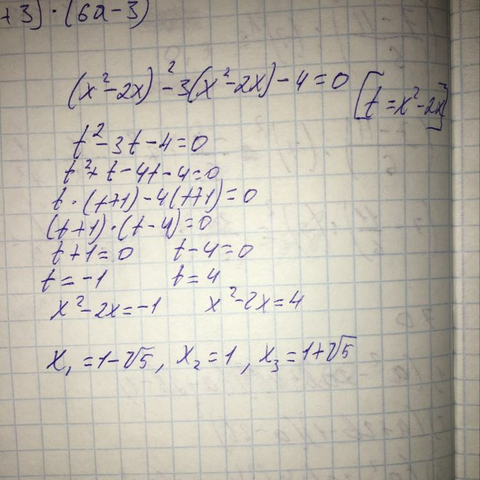 +3) · (6a-3)
(x²-2x)²-3(x²-2x)-4=0 [t=x²-2x]
t²-3t-4=0
t²+t-4t-4=0
t·(t+1)-4(t+1)=0
(t+1)·(t-4)=0
t+1=0 t-4=0
t=-1 t=4
x²-2x=-1 x²-2x=4
x₁=1-√5, x₂=1, x₃=1+√5